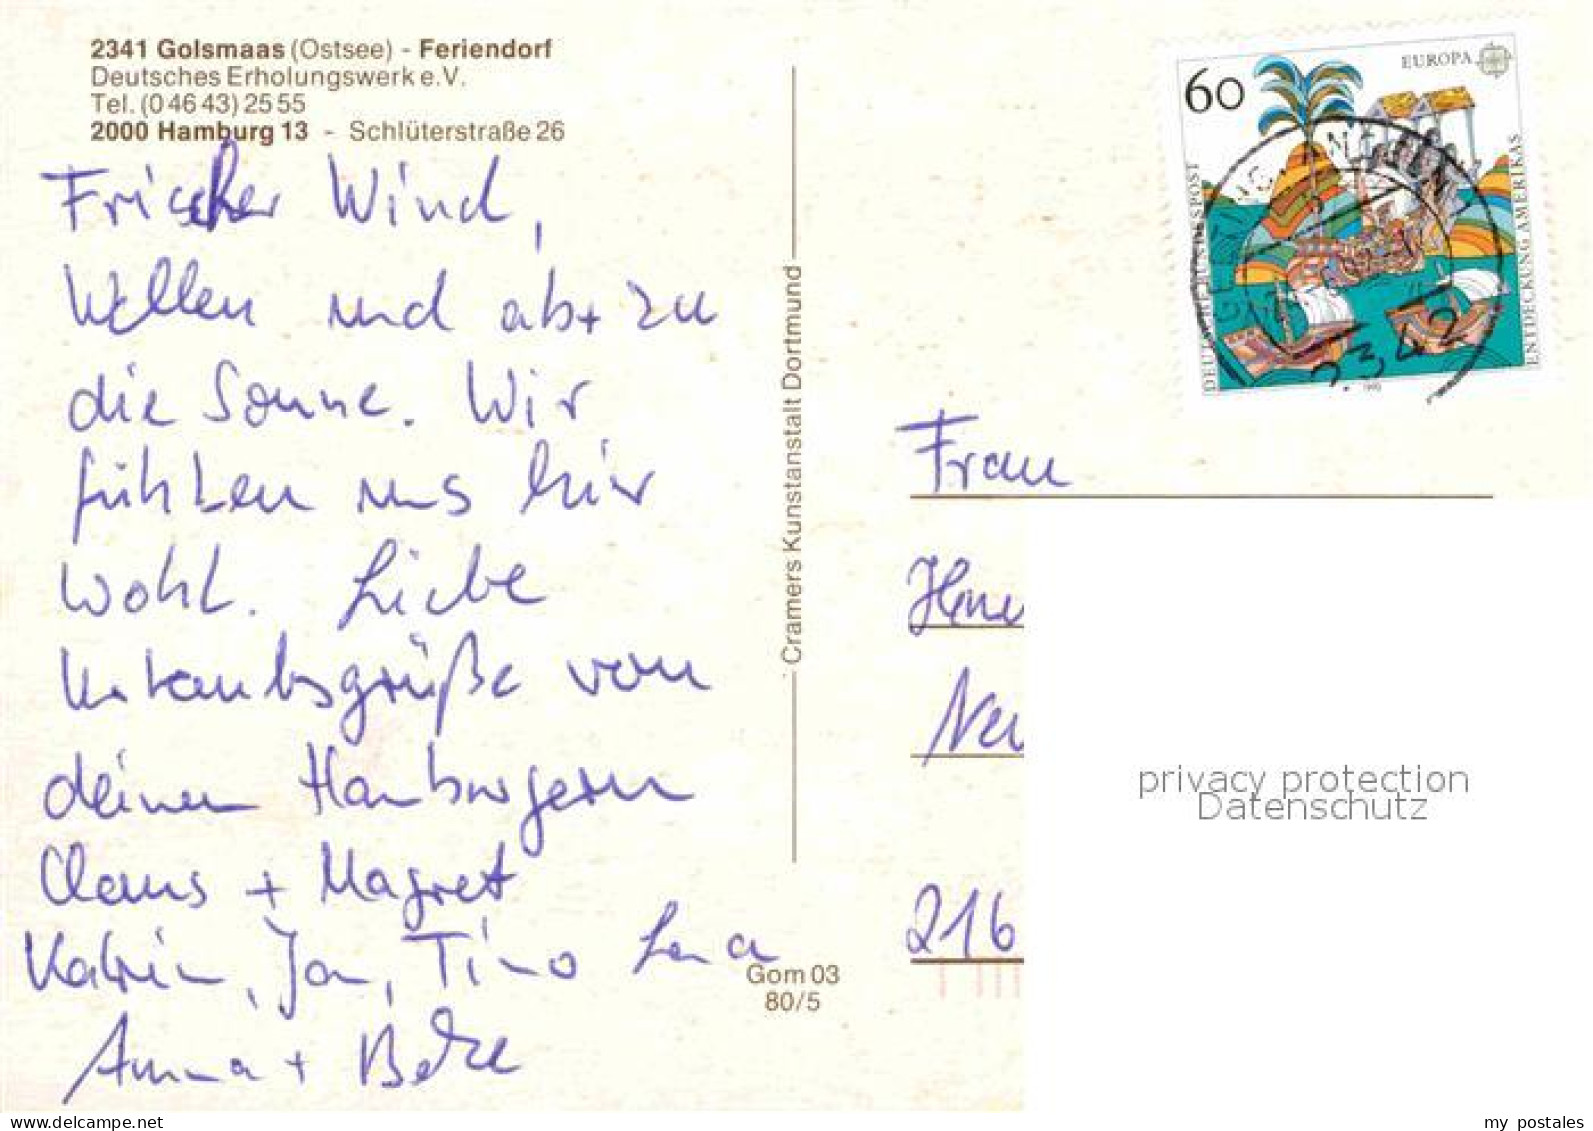 2341 Golsmaas (Ostsee) - Feriendorf
Deutsches Erholungswerk e.V.
Tel. (0 46 43) 25 55
2000 Hamburg 13 - Schlüterstraße 26
Frischer Wind,
Wellen und ab + zu
die Sonne. Wir
fühlen uns hier
wohl. Liebe
Urlaubsgrüße von
deinen Hamburgern
Claus + Magret
Katrin, Jan, Tino Lena
Anna +
Cramers Kunstanstalt Dortmund
Gom 03
80/5
60
EUROPA
DEUTSCHE BUNDESPOST
ENTDECKUNG AMERIKAS
1992
2342
Frau
216
privacy protection
Datenschutz
delcampe.net
my_postales